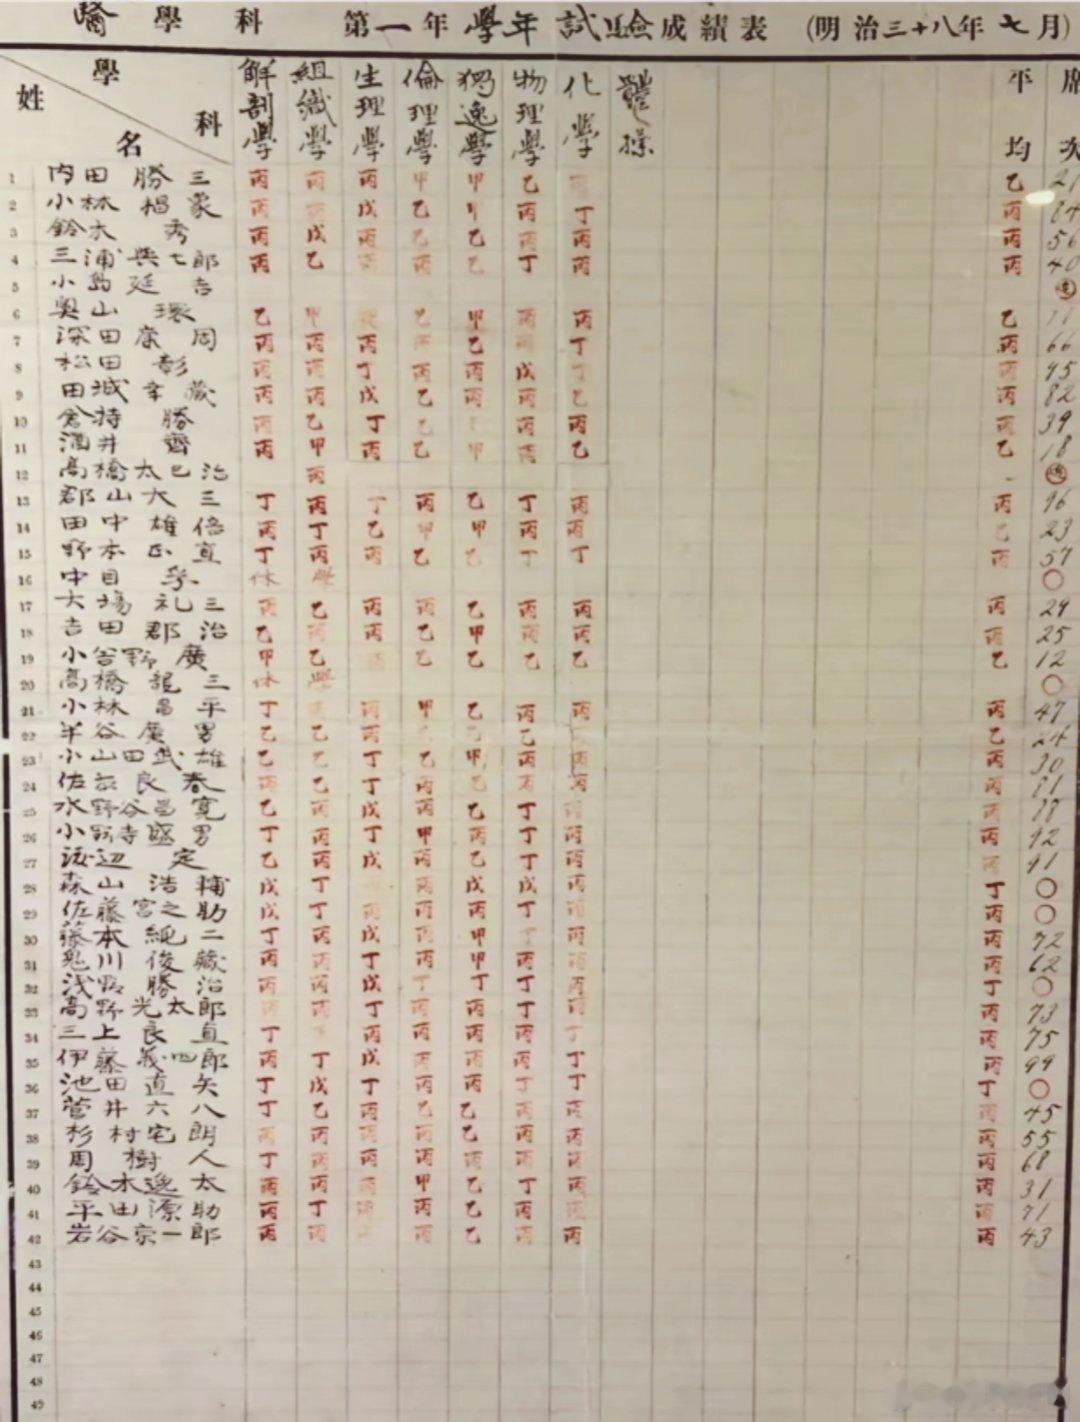 醫學科 第一年學年試驗成績表 (明治三十八年七月)
姓名 學科 解剖學 組織學 生理學 倫理學 獨逸學 物理學 化學 體操 平均 席次
1 内田勝三 丙 丙 丙 甲 甲 乙 乙 21
2 小林 丙 戊 乙 甲 丙 丁 丙
3 鈴木秀 丙 戊 丙 乙 乙 丙 丙 丙 56
4 三浦與七郎 丙 乙 丙 丙 乙 丁 丙 丙 40
5 小島廷吉
6 奥山環 乙 甲 乙 甲 丙 丙 乙 11
7 深田康周 丙 丙 丙 丙 乙 丙 丁 丙 66
8 松田彰 丙 丙 丁 丙 丙 戊 丁 丙 95
9 田城幸蔵 丙 丙 戊 乙 丙 丙 乙 丙 82
10 倉持勝 丙 乙 丁 乙 丙 丙 丙 39
11 酒井齊 丙 甲 丙 乙 甲 丙 乙 乙 18
12 高橋太巳治 丙
13 郡山大三 丁 丙 丁 丙 乙 丁 丙 丙 96
14 田中雄倍 丙 丁 乙 甲 甲 丙 丙 乙 23
15 野本正直 丁 丙 丙 乙 乙 丁 丁 丙 57
16 中目孚 休學 ○
17 大場礼三 丙 乙 丙 丙 乙 丙 丙 丙 29
18 吉田郡治 乙 丙 丙 乙 甲 丙 丙 丙 25
19 小谷野廣 甲 乙 丙 乙 乙 乙 乙 乙 12
20 高橋 三 休學 ○
21 小林昌平 丁 丙 丙 甲 乙 丙 丙 丙 47
22 半谷廣男 乙 乙 丙 乙 乙 乙 24
23 小山田武雄 乙 乙 丁 乙 甲 丙 丙 丙 30
24 佐 良春 丙 乙 丁 丙 乙 丙 丙 丙
25 水野谷昌寛 乙 丙 戊 丙 乙 丁 丙 丙
26 小野寺盛男 丁 丙 丁 甲 丙 丁 丙 丙 92
27 渡辺定 乙 丙 戊 丙 乙 丁 丙 丙 91
28 森山浩輔 戊 丁 丙 戊 戊 丙 丁 ○
29 佐藤宮之助 戊 丁 丙 丙 丙 丁 丙 丙 ○
30 藤本純二 丁 丙 戊 丙 甲 丁 丙 丙 72
31 川俊蔵 丙 丙 丁 丙 甲 丙 丙 丙 62
32 浅野勝治 丙 丙 戊 丁 丁 丁 丙 丁 ○
33 高野光太郎 丙 丙 丁 丙 丙 丁 丙 丙 73
34 三上良直 丁 丙 丙 丙 丙 丁 丙 75
35 伊藤義四郎 丙 丁 戊 丙 丙 丙 丁 丙 99
36 池田直矢 丁 戊 丁 丙 丙 丁 丁 丁 ○
37 菅井六八 丁 乙 丙 乙 乙 丙 丙 丙 45
38 杉村宅朗 丙 丙 丙 丙 乙 丙 丙 丙 55
39 周樹人 丁 丙 丙 丙 丙 丙 丙 丙 68
40 鈴木逸太 丙 丙 丙 甲 乙 丁 丙 丙 31
41 平田源助 丙 丁 丙 丙 乙 丙 丙 丙 71
42 岩谷宗一郎 丙 丙 丙 丙 乙 丙 丙 丙 43
43
44
45
46
47
48
49